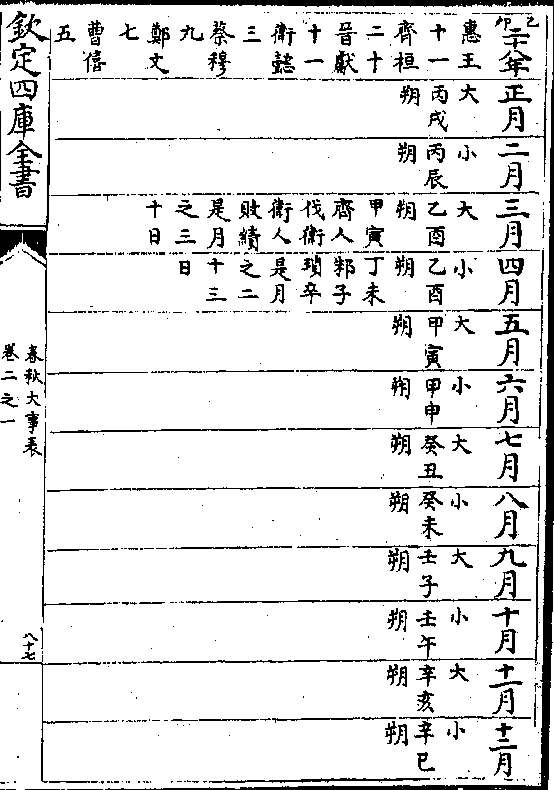 己卯
二十八年
惠王
十一
齊桓
二十
晉獻
十一
衛懿
三
蔡穆
九
鄭文
七
曹僖
五
正月
大
丙戌
朔
二月
小
丙辰
朔
三月
大
乙酉
朔
甲寅
齊人
伐衛
衛人
敗績
是月
之三
十日
四月
小
乙酉
朔
丁未
邾子
瑣卒
是月
之二
十三
日
五月
大
甲寅
朔
六月
小
甲申
朔
七月
大
癸丑
朔
八月
小
癸未
朔
九月
大
壬子
朔
十月
小
壬午
朔
十一月
大
辛亥
朔
十二月
小
辛巳
朔
欽定四庫全書
春秋大事表
卷二之一
八十七